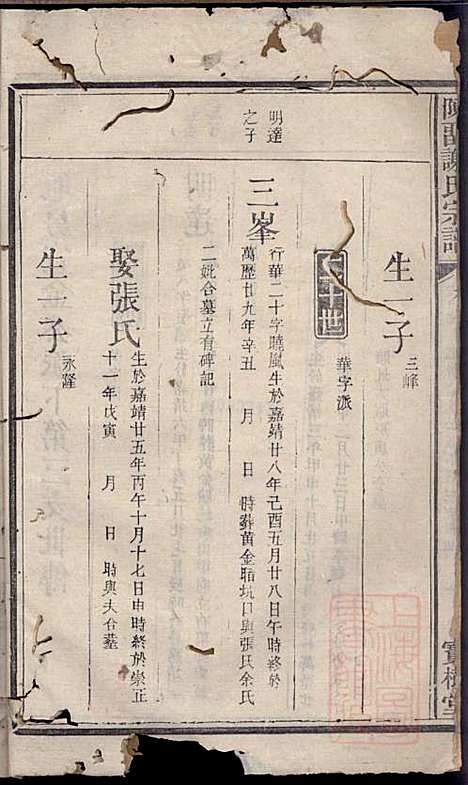 陳留謝氏宗譜
寶樹堂
生一子 三峰
世
華字派
明達
之子
三峯 行華二十字曉嵐生於嘉靖廿八年己酉五月廿八日午時終於
萬歷廿九年辛丑 月 日 時葬黄金 坑口與張氏余氏
二妣合墓立有碑記
娶張氏 生於嘉靖廿五年丙午十月十七日申時終於崇正
十一年戊寅 月 日 時與夫合墓
生一子 永隆